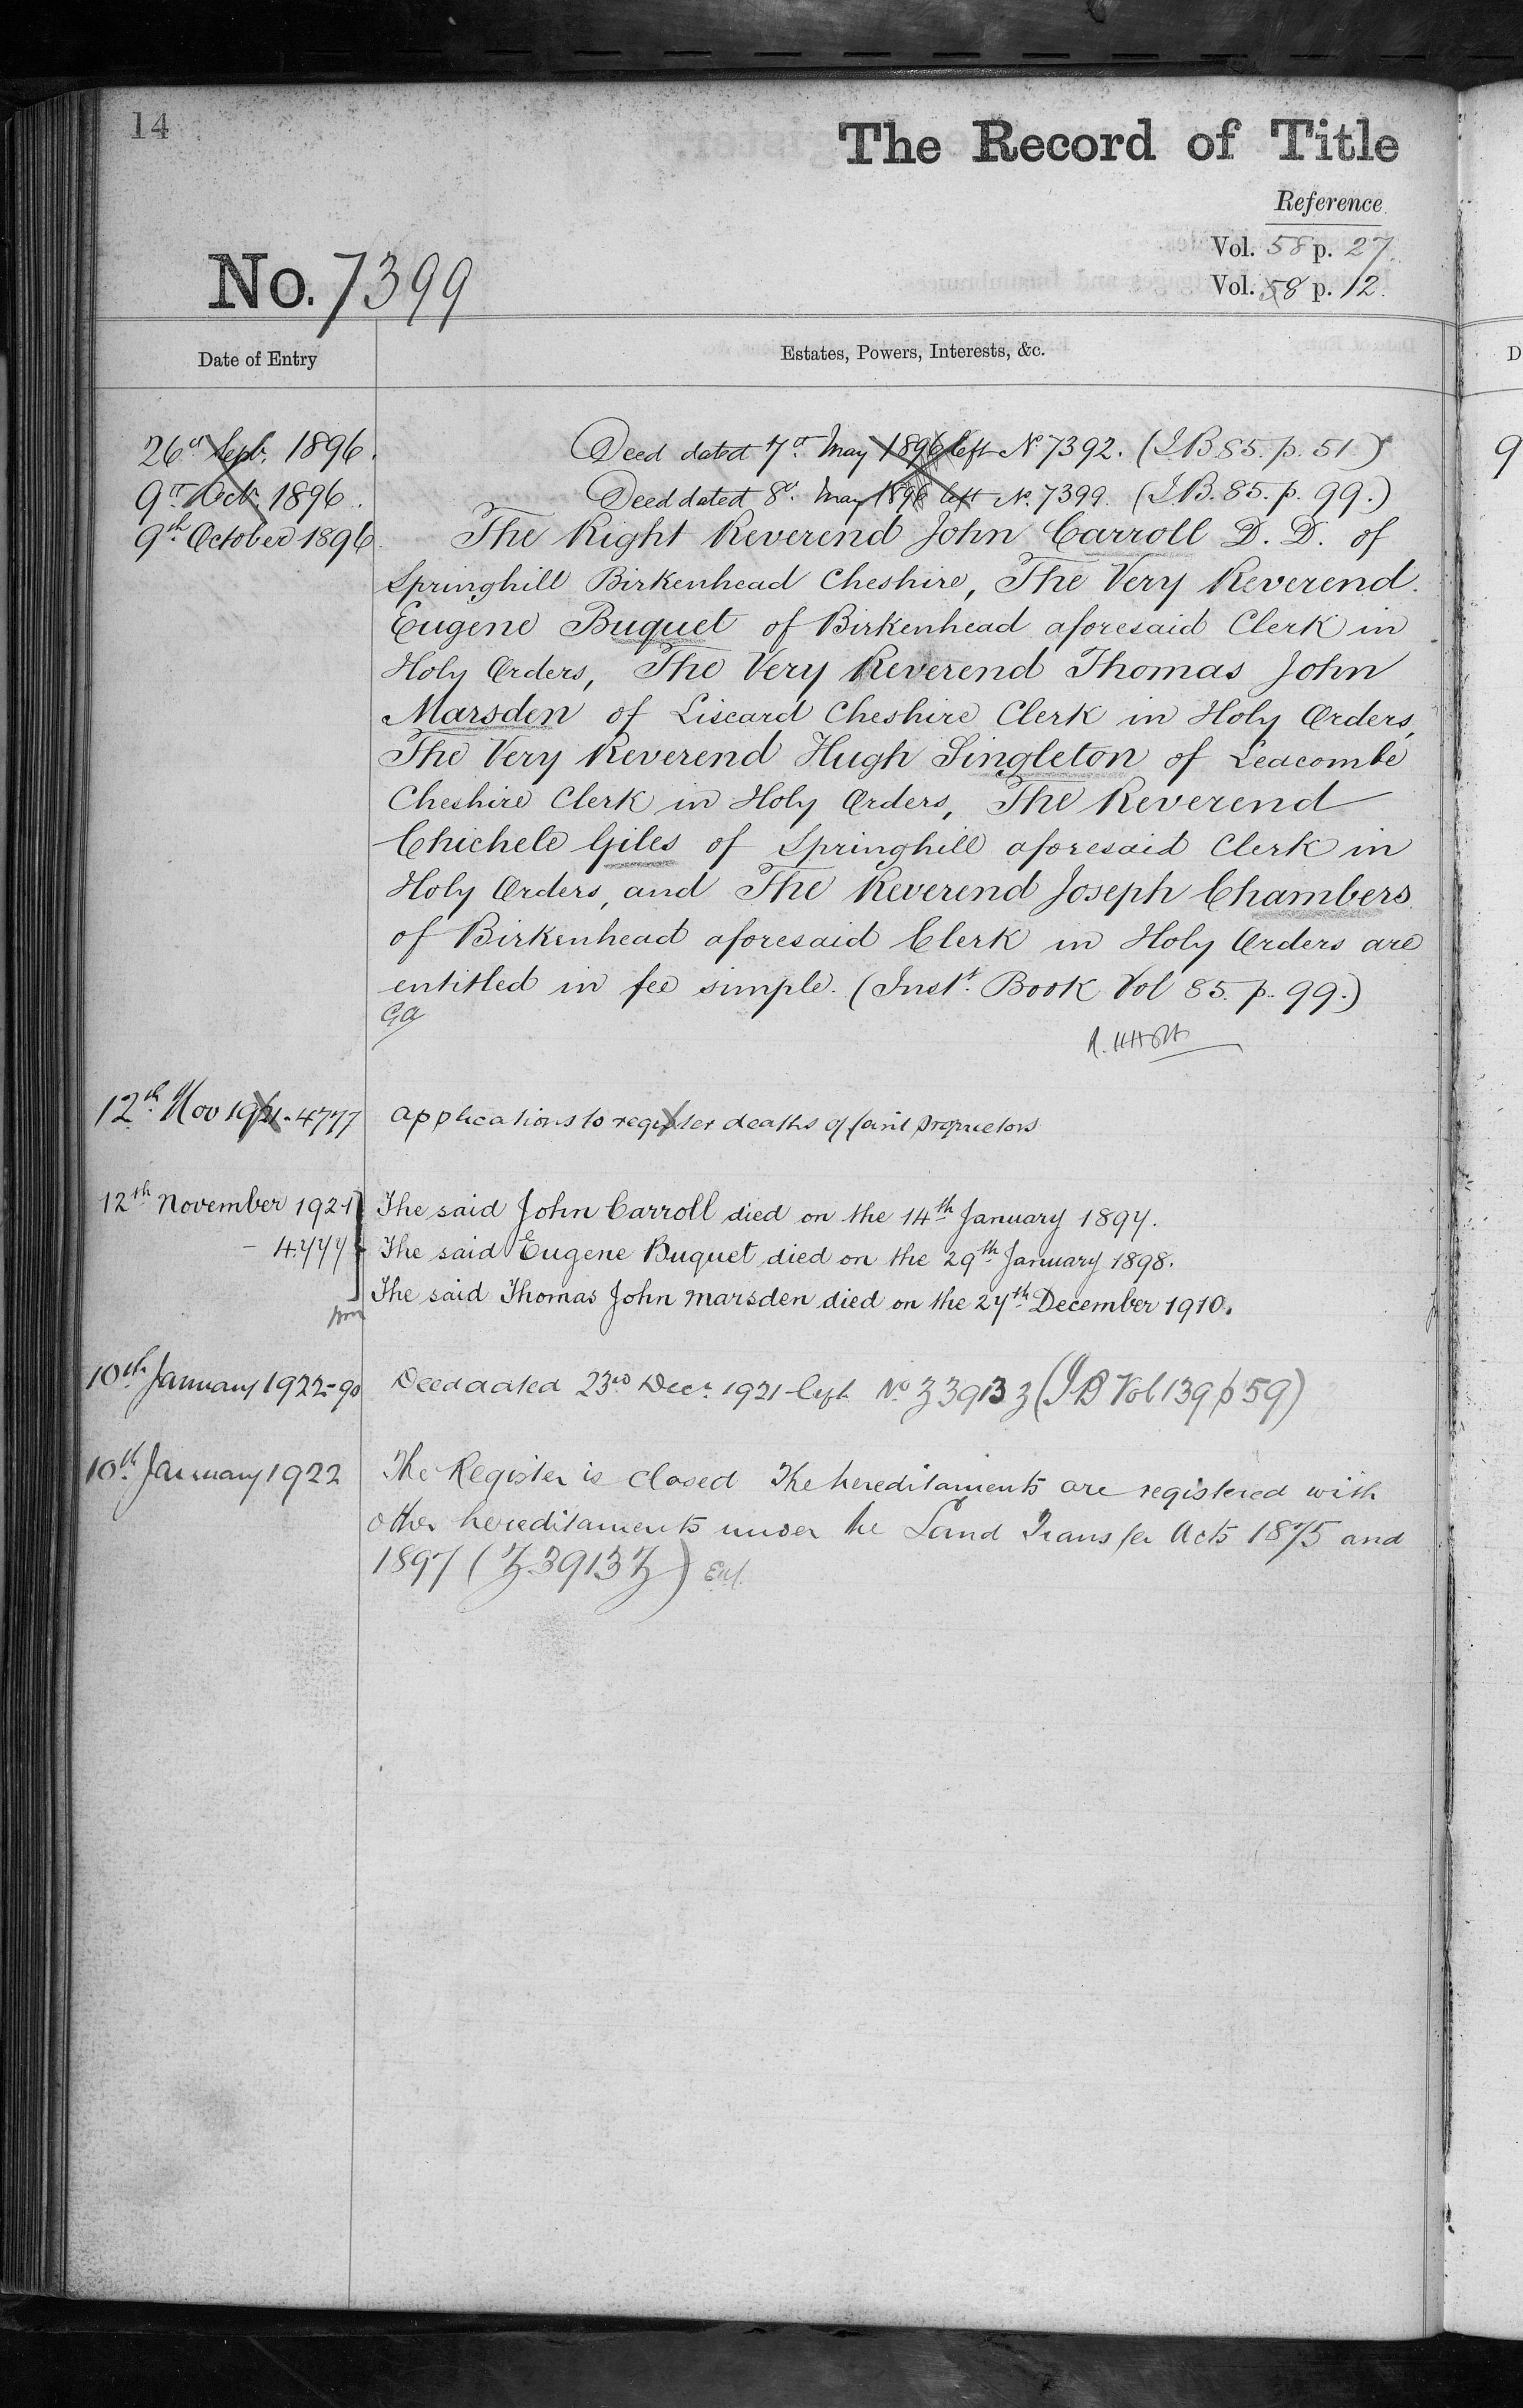 14
The Record of Title
Reference
Vol. 58 p. 27.
No. 7399
Vol. 58 p. 12.
Date of Entry
Estates, Powers, Interests, &c.
26th Sept. 1896. Deed dated 7th May 1896 left No. 7392. (I.B 85. p. 51.)
9th Oct. 1896. Deed dated 8th May 1896 left No. 7399. (I.B. 85. p. 99.)
9th October 1896. The Right Reverend John Carroll D. D. of
Springhill Birkenhead Cheshire, The Very Reverend
Eugene Buquet of Birkenhead aforesaid Clerk in
Holy Orders, The Very Reverend Thomas John
Marsden of Liscard Cheshire Clerk in Holy Orders,
The Very Reverend Hugh Singleton of Seacombe
Cheshire Clerk in Holy Orders, The Reverend
Chichele Giles of Springhill aforesaid Clerk in
Holy Orders, and The Reverend Joseph Chambers
of Birkenhead aforesaid Clerk in Holy Orders are
entitled in fee simple. (Inst. Book Vol 85. p. 99.)
12th Nov 1921 - 4777 Applications to register deaths of joint proprietors
12th November 1921 The said John Carroll died on the 14th January 1897.
- 4777 The said Eugene Buquet died on the 29th January 1898.
The said Thomas John Marsden died on the 27th December 1910.
10th January 1922 - 90 Deed dated 23rd Decr. 1921 left No Z3913Z (I B Vol 139 p 59)
10th January 1922 The Register is closed The hereditaments are registered with
other hereditaments under the Land Transfer Acts 1875 and
1897 (Z3913Z)
D
9